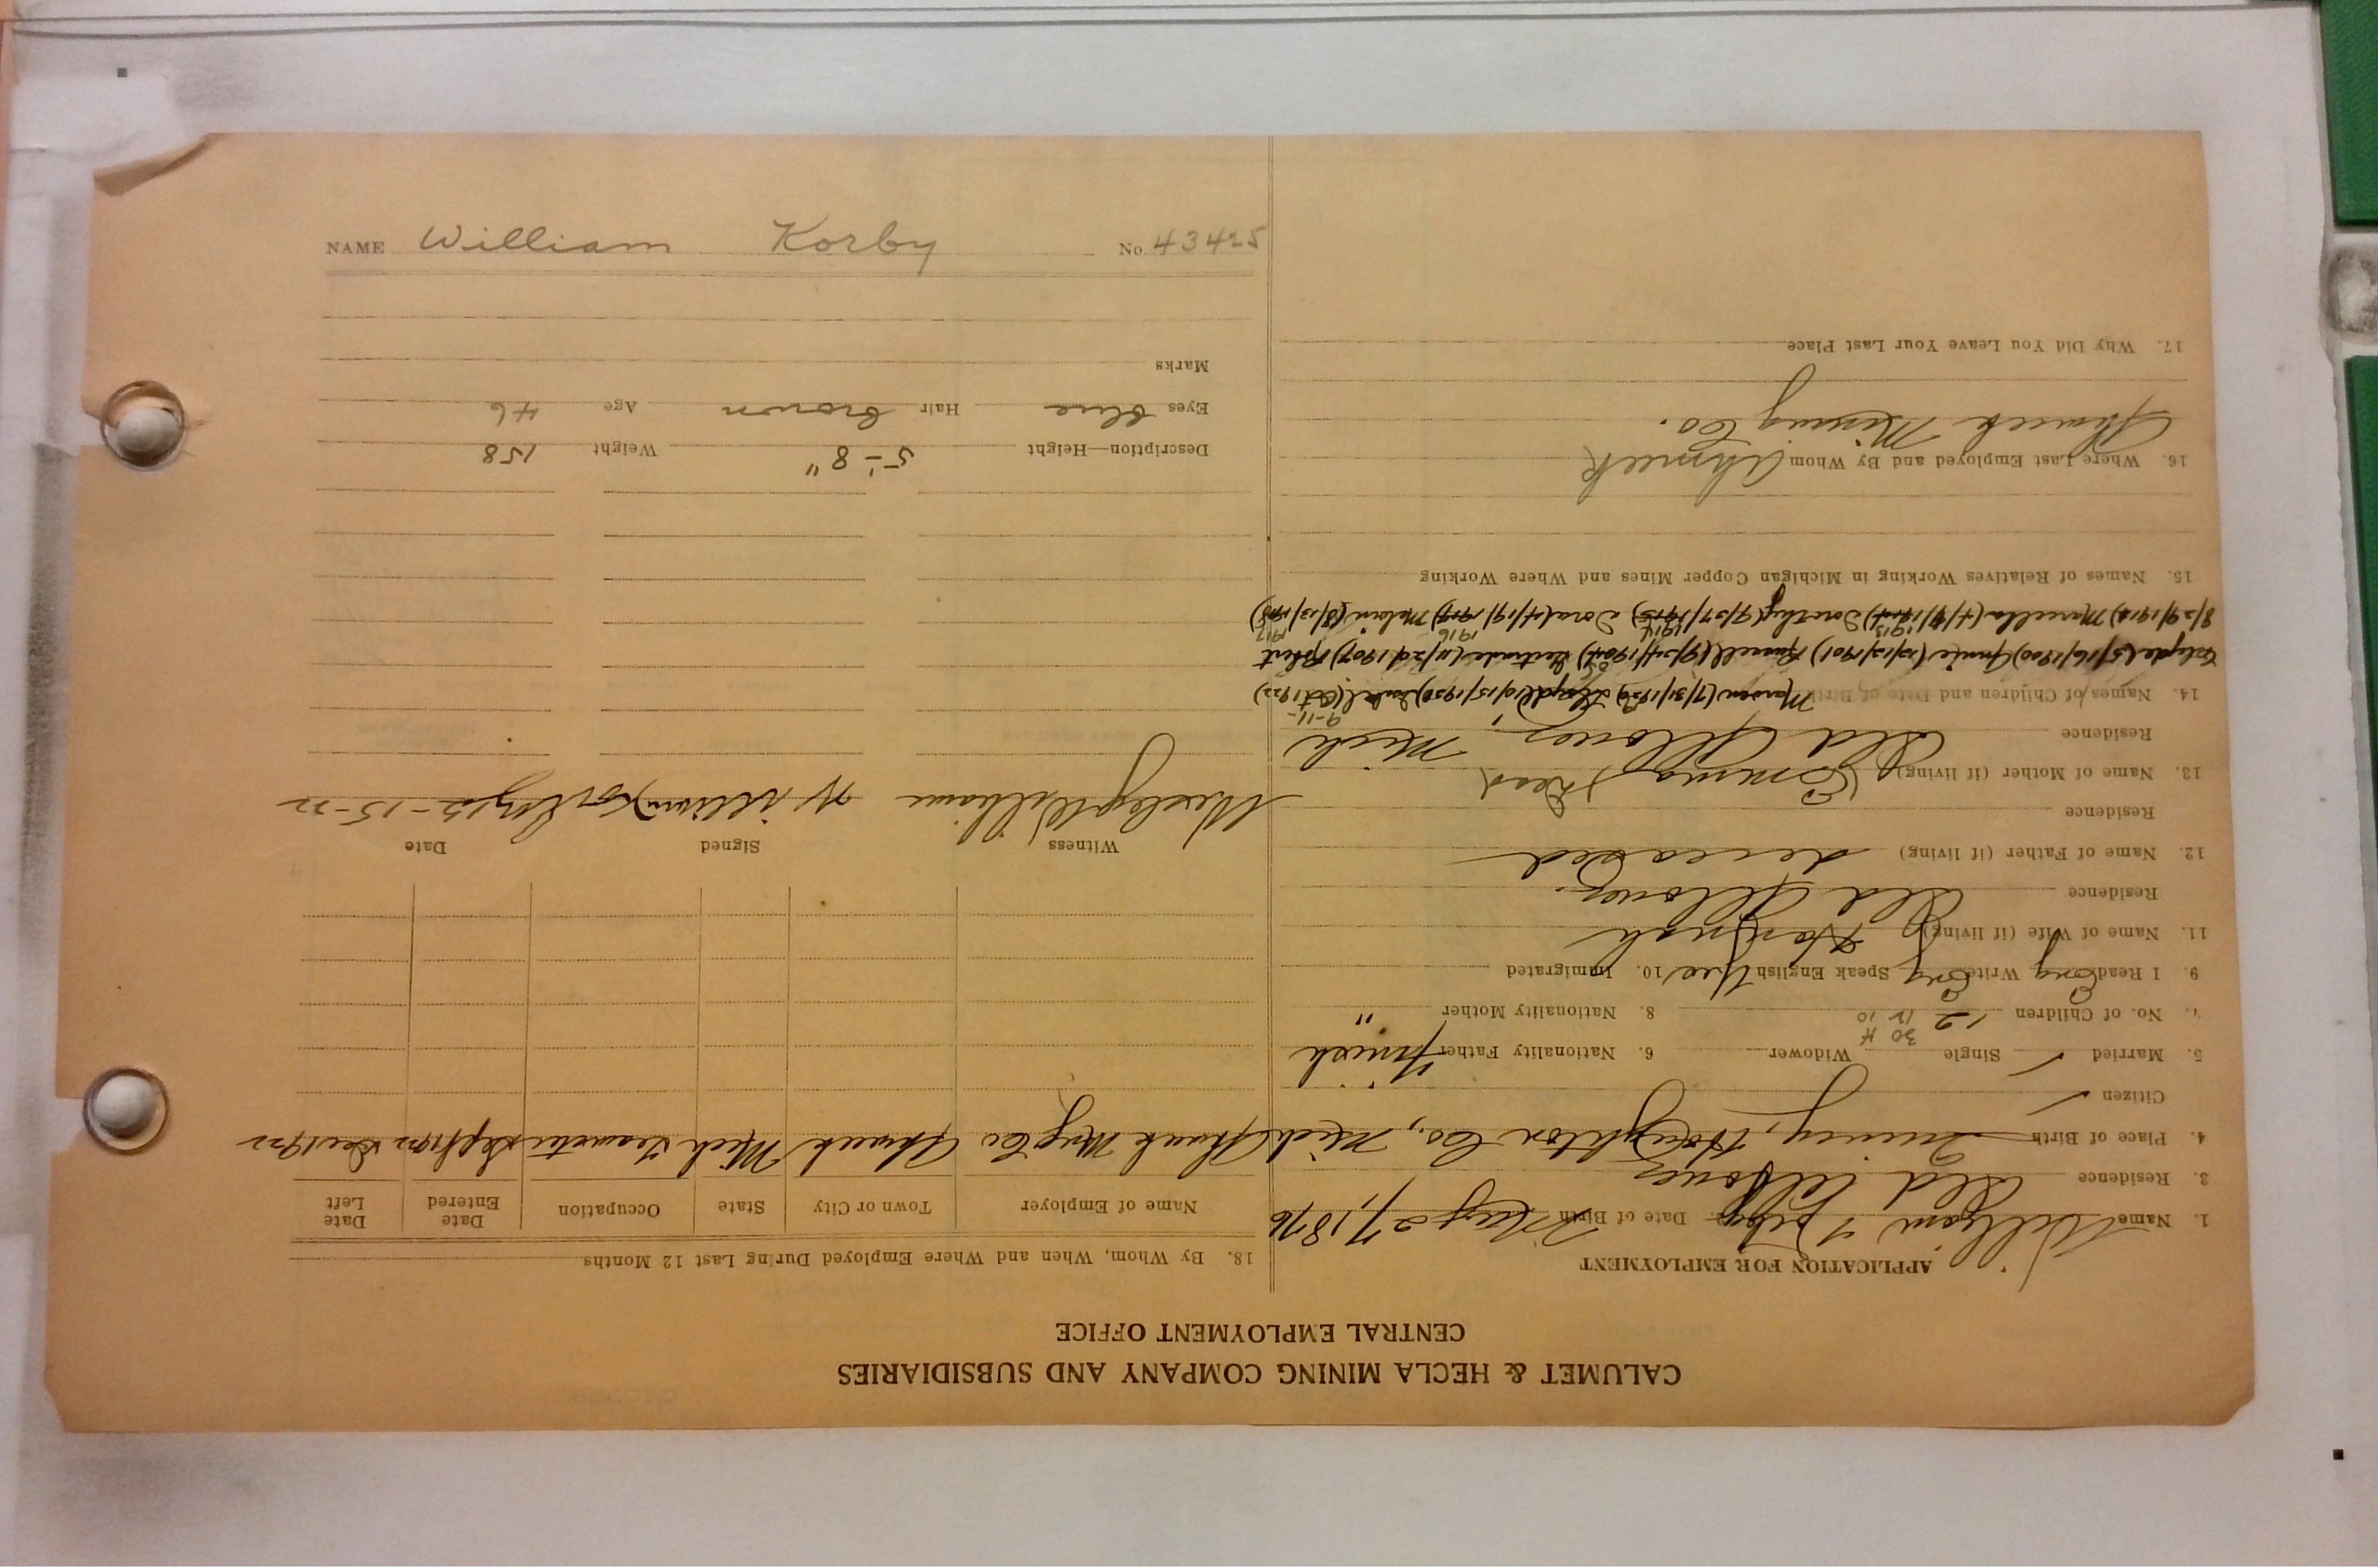 NAME William Korby No. 43425
CALUMET & HECLA MINING COMPANY AND SUBSIDIARIES
CENTRAL EMPLOYMENT OFFICE
APPLICATION FOR EMPLOYMENT
1. Name William Korby 2. Date of Birth May 27, 1876
3. Residence Old Allouez
4. Place of Birth Quincy, Houghton Co., Mich
Citizen ✓
5. Married ✓ Single Widower 6. Nationality Father French
30 H
7. No. of Children 12 8. Nationality Mother "
12 10
9. I Read Eng Write Eng Speak English Yes 10. Immigrated
11. Name of Wife (if living) Hannah
Residence Old Allouez.
12. Name of Father (if living) deceased
Residence
13. Name of Mother (if living) Emma Dead
Residence Old Allouez, Mich 9-11-
14. Names of Children and Date of Birth
Clyde (5/16/1900) (12/12/1901) Russell (9/24/1904) Gertrude (11/29/1907) Robert
8/29/1912) Marcella (4/4/1914) Dorothy (9/27/1915) Dora (4/19/1917) Melvin (8/13/1918)
1913 1914 1916 1917
15. Names of Relatives Working in Michigan Copper Mines and Where Working
16. Where Last Employed and By Whom Ahmeek
Ahmeek Mining Co.
17. Why Did You Leave Your Last Place
18. By Whom, When and Where Employed During Last 12 Months
Name of Employer Town or City State Occupation Date Entered Date Left
Ahmeek Mng Co Ahmeek Mich Teamster Sept 1902 Dec 1922
Witness Signed Date
Wesley Williams William Korby 12-15-22
Description—Height 5'-8" Weight 158
Eyes blue Hair brown Age 46
Marks